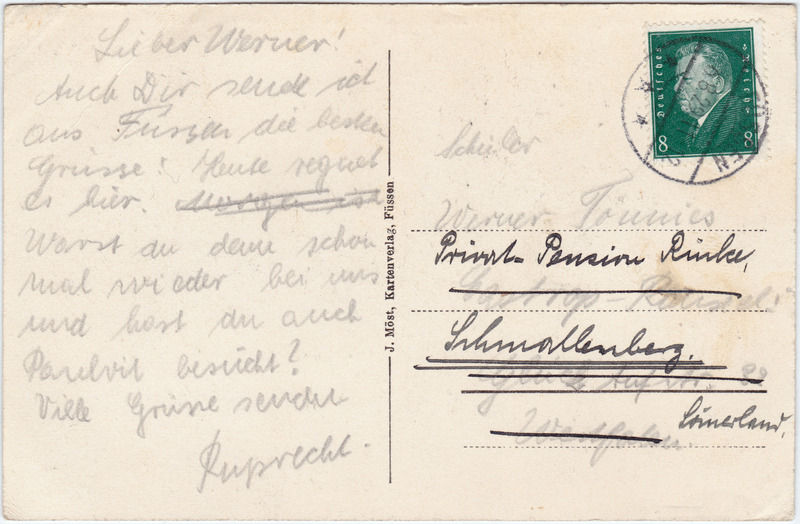 Lieber Werner!
Auch Dir sende ich
aus Füssen die besten
Grüsse! Heute regnet
es hier. Morgen ist
Warst du denn schon
mal wieder bei uns
und hast du auch
besucht?
Ville Grüsse sendet
Ruprecht.
J. Möst, Kartenverlag, Füssen
Deutsches Reich
8 8
Schüler
Werner Tönnies
Privat-Pension Rinke,
Castrop-Rauxel
Schmallenberg.
Glück Aufstr. 
Sauerland,
Westfalen.